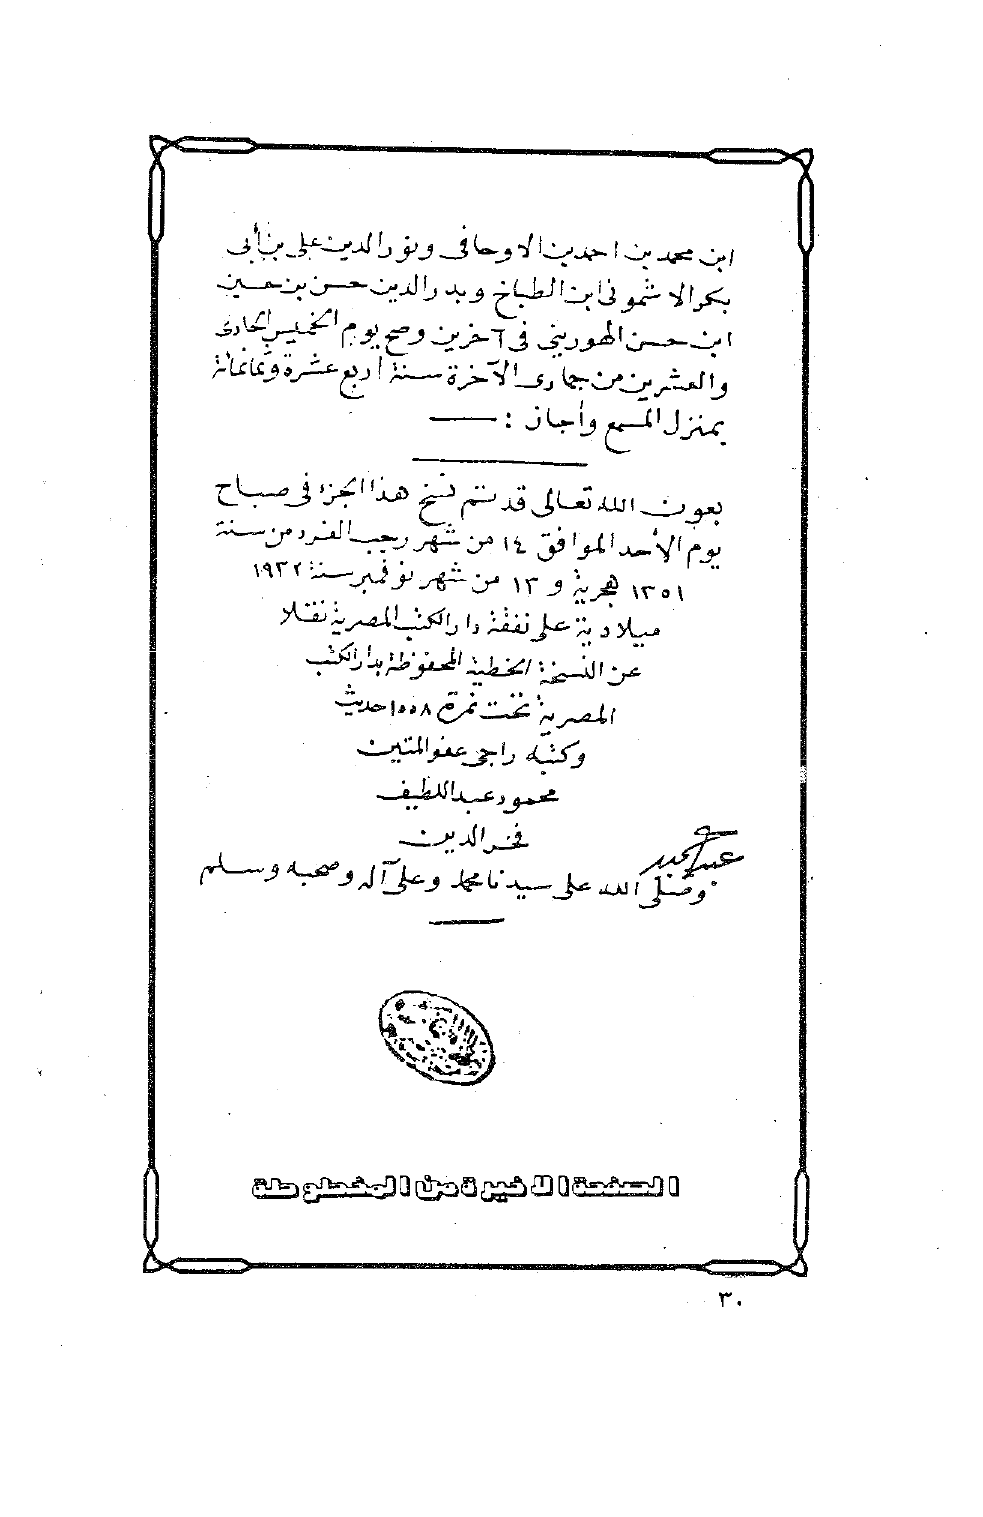 ابن محمد بن احمد بن الاوحافى ونور الدين على بن أبى
بكر الاشمونى ابن الطباخ وبدر الدين حسن بن حسين
ابن حسن الهورينى فى آخرين وصح يوم الخميس الحادى
والعشرين من جمادى الآخرة سنة أربع عشرة وثمانمائة
بمنزل المسمع وأجاز : ——
بعون الله تعالى قد تم نسخ هذا الجزء فى صباح
يوم الأحد الموافق ١٤ من شهر رجب الفرد من سنة
١٣٥١ هجرية و ١٣ من شهر نوفمبر سنة ١٩٣٢
ميلادية على نفقة دار الكتب المصرية نقلا
عن النسخة الخطية المحفوظة بدار الكتب
المصرية تحت نمرة ١٥٥٨ حديث
وكتبه راجى عفو المتين
محمود عبد اللطيف
فخر الدين
وصلى الله على سيدنا محمد وعلى آله وصحبه وسلم
الصفحة الاخيرة من المخطوطة
٣٠